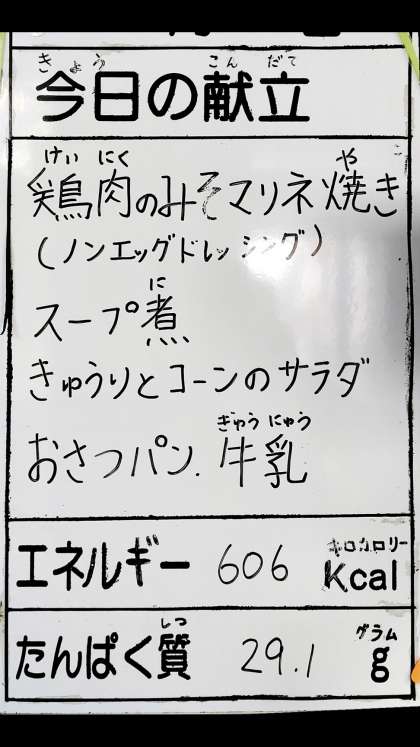 きょう こんだて
今日の献立
けいにく や
鶏肉のみそマリネ焼き
(ノンエッグドレッシング)
に
スープ煮
きゅうりとコーンのサラダ
ぎゅうにゅう
おさつパン. 牛乳
キロカロリー
エネルギー 606 Kcal
しつ グラム
たんぱく質 29.1 g